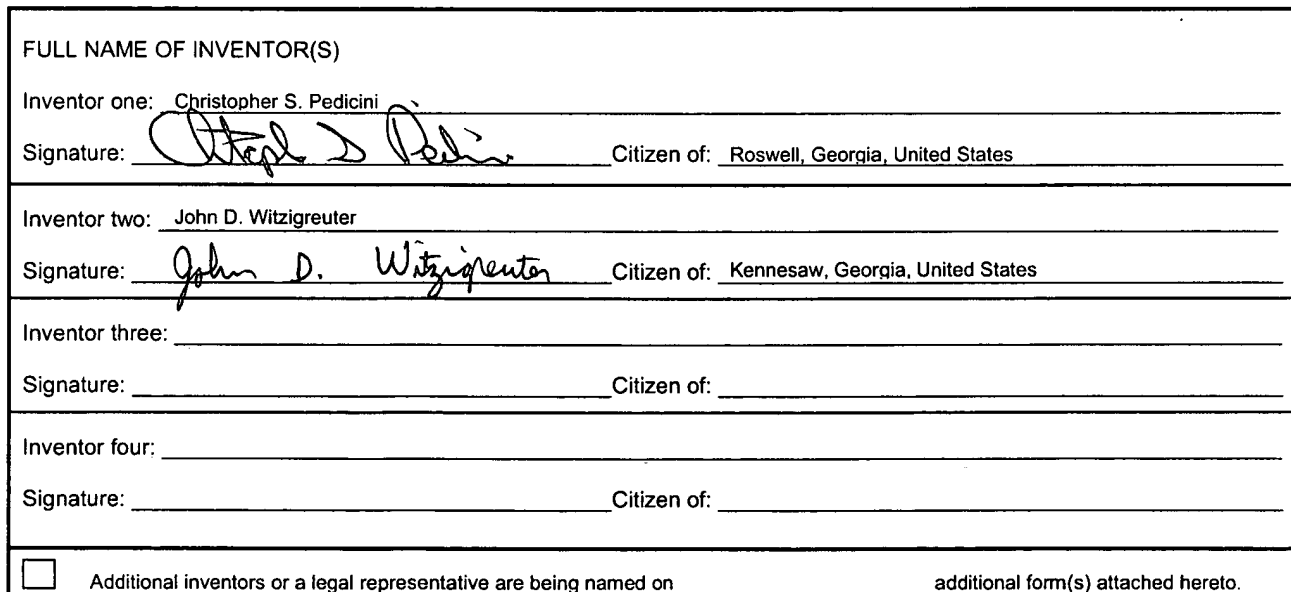 FULL NAME OF INVENTOR(S)
Inventor one: Christopher S. Pedicini
Signature: Citizen of: Roswell, Georgia, United States
Inventor two: John D. Witzigreuter
Signature: John D. Witzigreuter Citizen of: Kennesaw, Georgia, United States
Inventor three:
Signature: Citizen of:
Inventor four:
Signature: Citizen of:
Additional inventors or a legal representative are being named on additional form(s) attached hereto.